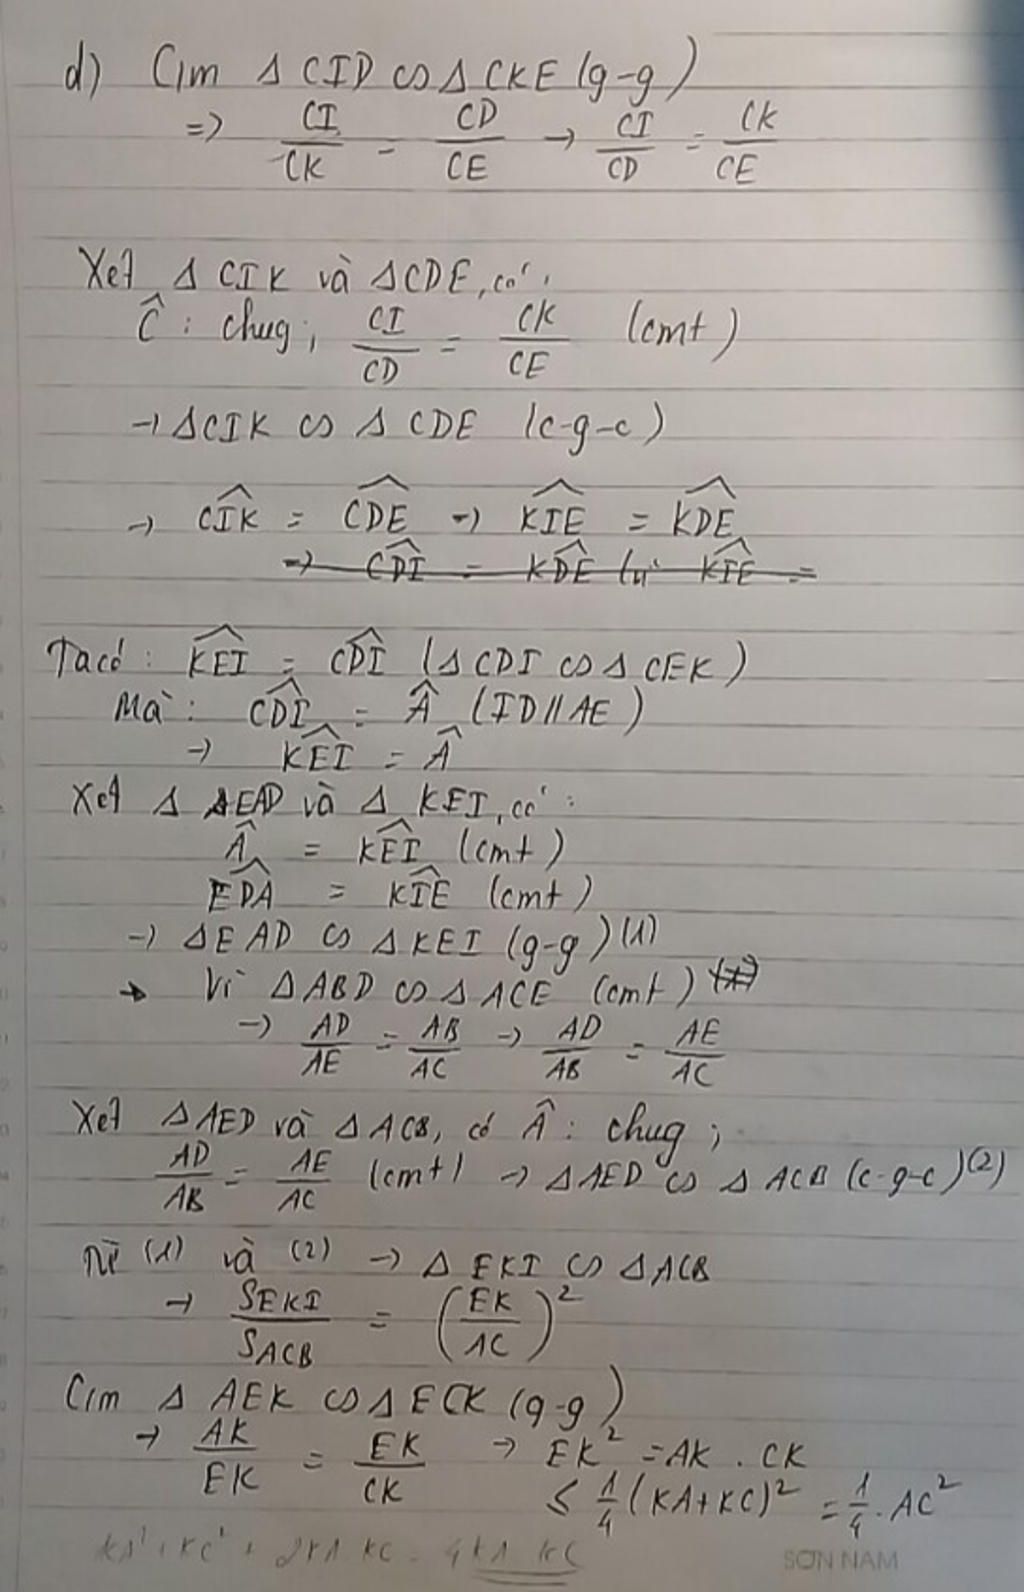 d) C/m Δ CID ∽ Δ CKE (g-g)
=> CI/CK = CD/CE → CI/CD = CK/CE
Xét Δ CIK và ΔCDE, có:
Ĉ : chug; CI/CD = CK/CE (cmt)
→ ΔCIK ∽ Δ CDE (c-g-c)
→ CÎK = CD̂E → KÎE = KD̂E
Ta có: KÊI = CD̂I (Δ CDI ∽ Δ CEK)
Mà: CD̂I = Â (ID // AE)
→ KÊI = Â
Xét Δ EAD và Δ KEI, có:
Â = KÊI (cmt)
ED̂A = KÎE (cmt)
→ ΔEAD ∽ Δ KEI (g-g) (1)
→ Vì ΔABD ∽ Δ ACE (cmt)
→ AD/AE = AB/AC → AD/AB = AE/AC
Xét ΔAED và Δ ACB, có Â : chug;
AD/AB = AE/AC (cmt) → ΔAED ∽ Δ ACB (c-g-c) (2)
Từ (1) và (2) → Δ EKI ∽ ΔACB
→ SEKI/SACB = (EK/AC)²
C/m Δ AEK ∽ Δ ECK (g-g)
→ AK/EK = EK/CK → EK² = AK . CK
≤ 1/4 (KA+KC)² = 1/4 . AC²
SON NAM